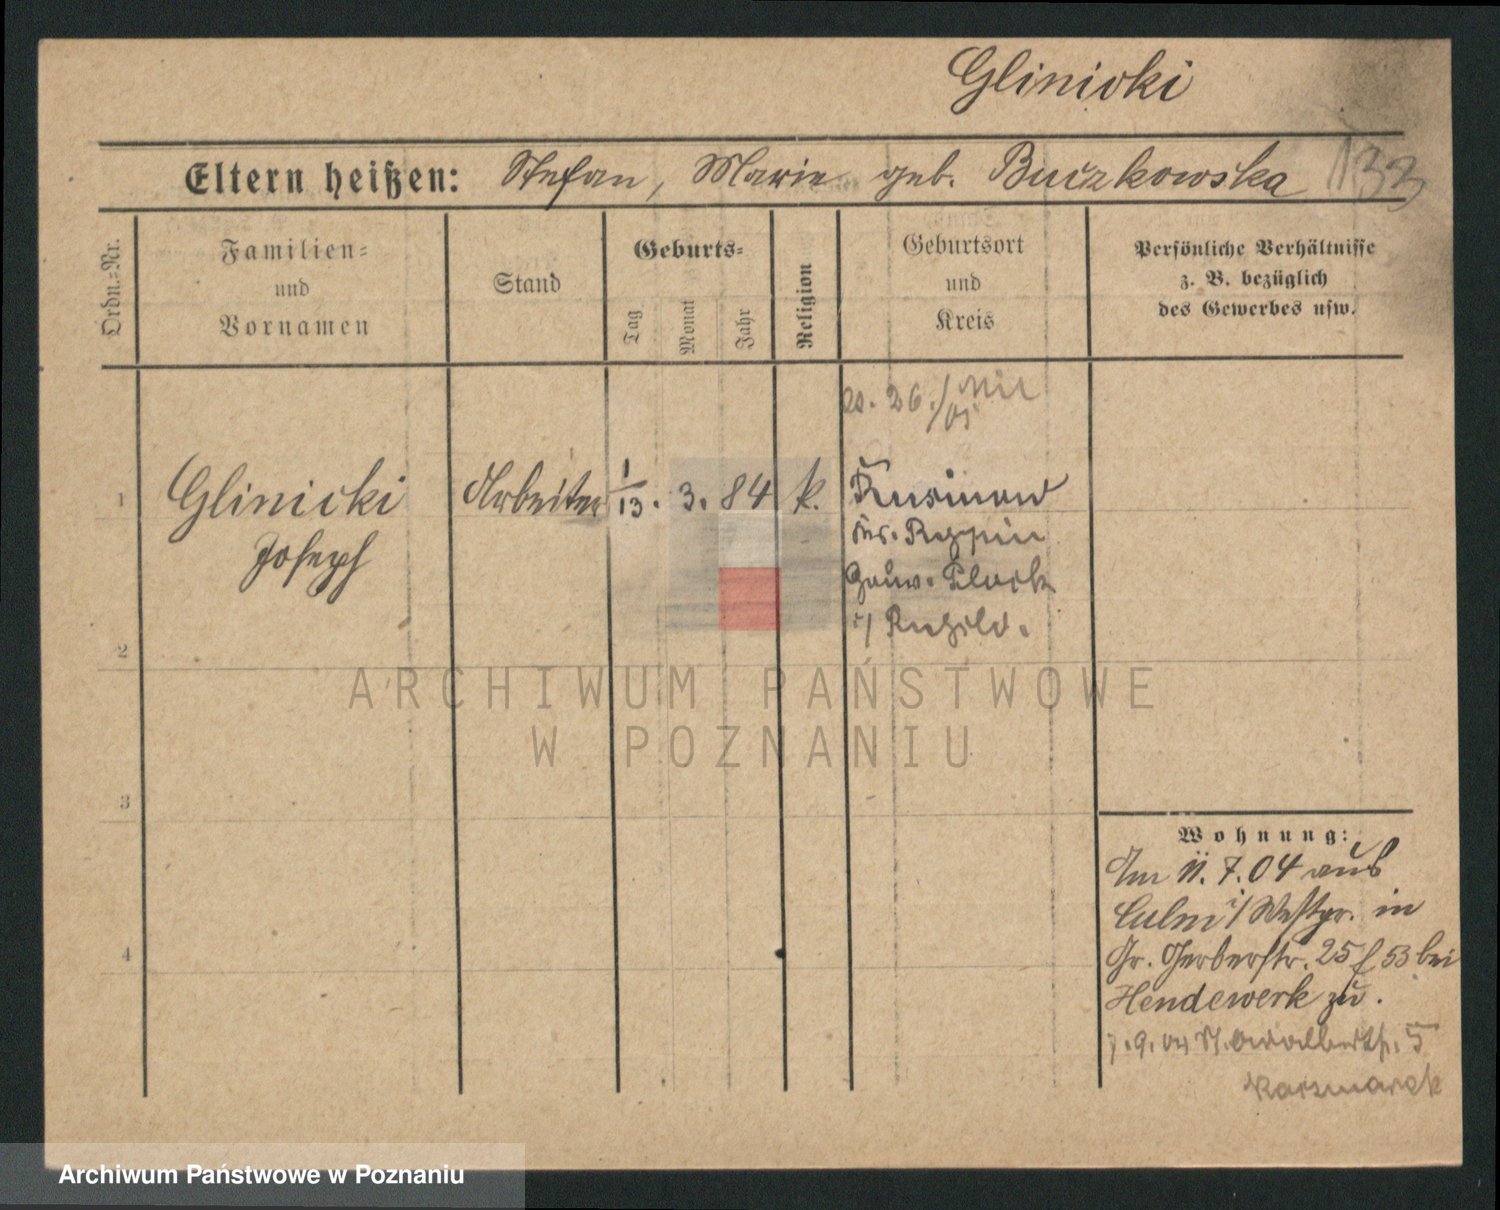 Glinicki
Eltern heißen: Stefan, Marie geb. Buczkowska 133
Ordn.=Nr.
Familien=
und
Vornamen
Stand
Geburts=
Tag
Monat
Jahr
Religion
Geburtsort
und
Kreis
Persönliche Verhältnisse
z. B. bezüglich
des Gewerbes usw.
26./
1 Glinicki Arbeiter 1/13. 3. 84 k.
Joseph
Gouv. Plock
i/
2
ARCHIWUM PAŃSTWOWE
W POZNANIU
3
4
Wohnung:
Am 11. 7. 04 aus
Culm i/ Westpr. in
Gr. Gerberstr. 25 f 53 bei
Hendewerk zu.
7. 9. 04 St. Adalbertstr. 5
Karzmarek
Archiwum Państwowe w Poznaniu